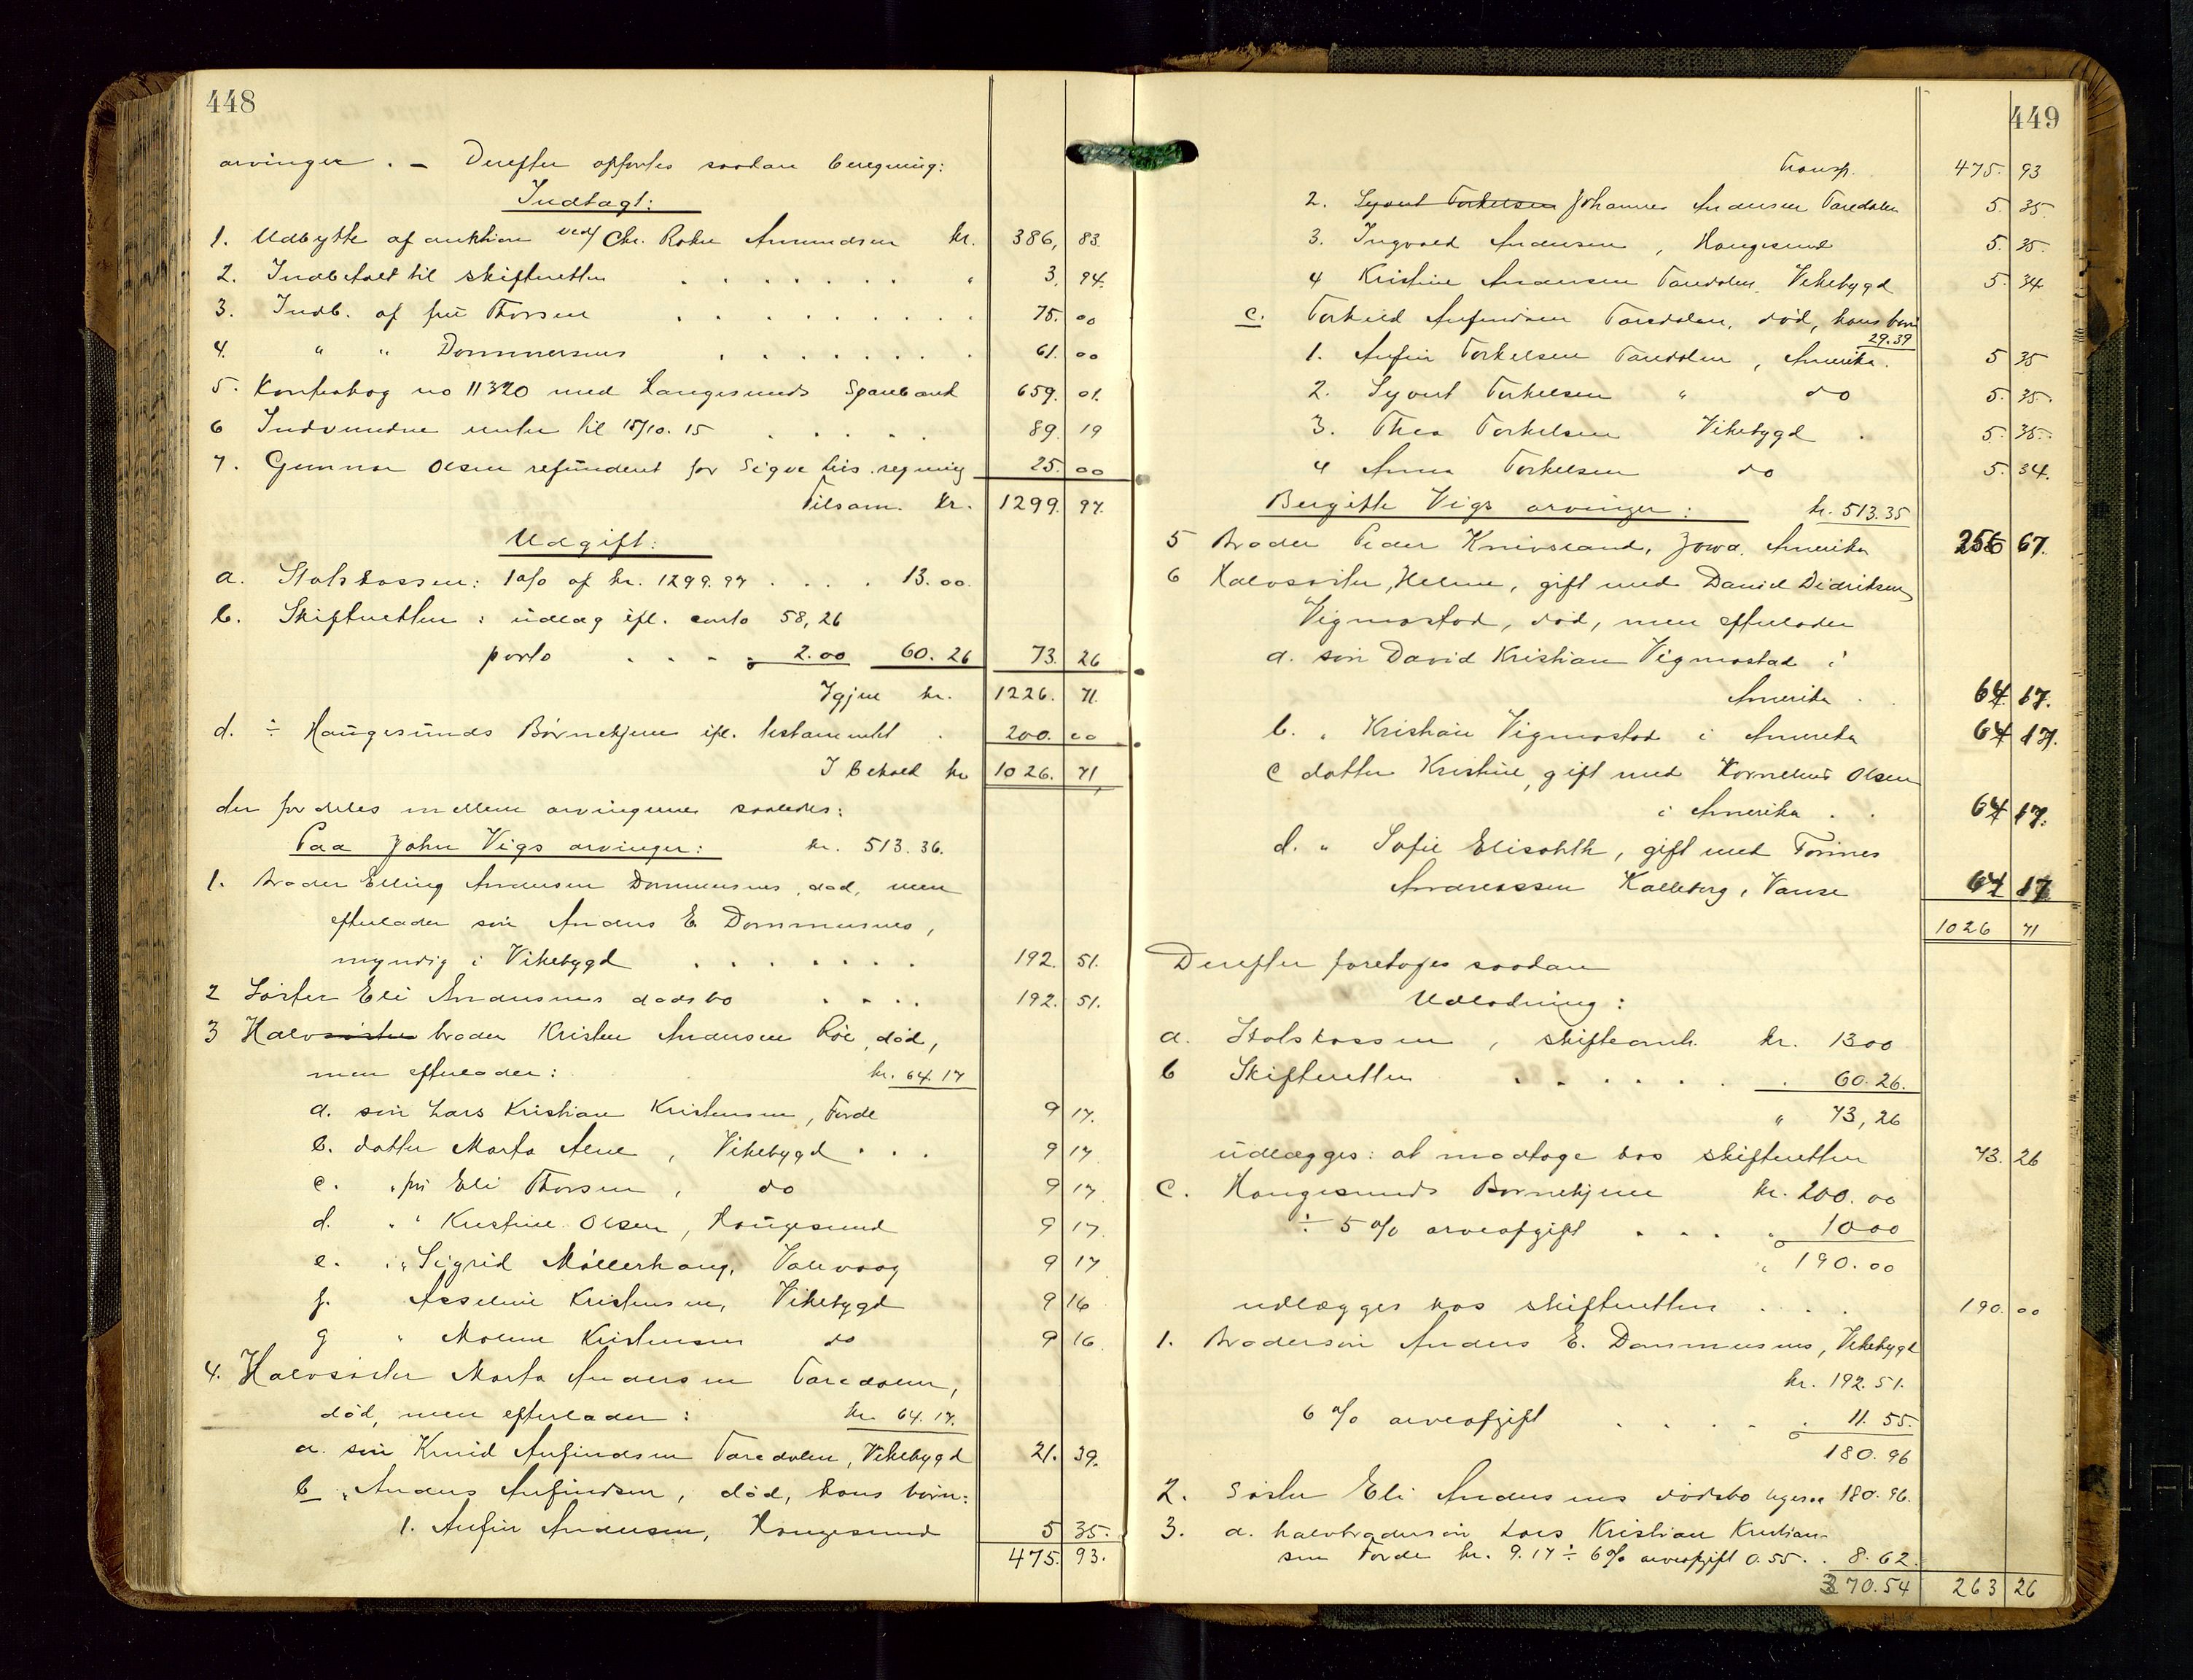 448
arvinger. – Derefter opførtes saadan beregning:
Indtægt:
1. Udbytte af auktion ved Chr. Amundsen kr. 386, 83.
2. Indbetalt til skifteretten . . . . . . . " 3. 94.
3. Indb. af fru Thorsen . . . . . . . . . 75. 00
4. " " Dommersnes . . . . . . . 61. 00
5. Kontrabog no 11320 med Haugesunds Sparebank 659. 01.
6 Indvundne renter til 15/10. 15 . . . . . 89. 19
7. Gunnar Olsen refunderet for regning 25. 00
Tilsam. kr. 1299. 97.
Udgift:
a. Statskassen: 1 o/o af kr. 1299.97 . . . . 13.00.
b. Skifteretten: udlæg ifl. conto 58,26
porto . . . . 2.00 60.26 73. 26
Igjen kr. 1226. 71.
d. ÷ Haugesunds Børnehjem ifl. testamentet . 200. 00
I behold kr 1026. 71
der fordeles mellem arvingerne saaledes:
Paa John Vigs arvinger: kr. 513.36.
1. broder Elling Andersen Dommersnes, død, men
efterlader søn Anders E. Dommersnes,
myndig i Vikebygd . . . . . . . 192. 51.
2 Søster Eli Andersens dødsbo . . . . 192. 51.
3 Halvsøster broder Kristen Andersen Røe, død,
men efterlader: kr. 64.17
a. søn Lars Kristian Kristensen, Førde 9 17.
b. datter Marta Aene, Vikebygd . . . 9 17
c. " fru Eli Thorsen, do 9 17
d. " " Kristine Olsen, Haugesund 9 17
e. " " Sigrid Møllerhaug, Valevaag 9 17
f. Asseline Kristensen, Vikebygd 9 16
g " Malene Kristensen do 9 16
4. Halvsøster Marta Andersen Taredalen,
død, men efterlader: kr. 64.17.
a. søn Knud Anfindsen Taredalen, Vikebygd 21. 39.
b " Anders Anfindsen, død, hans børn:
1. Anfin Andersen, Haugesund 5 35.
475. 93.
449
Transp. 475. 93
2. Syvert Torkelsen Johannes Andersen Taredalen 5. 35.
3. Ingvald Andersen, Haugesund 5. 35.
4 Kristine Andersen Taredalen, Vikebygd 5. 34
c. Torkild Anfindsen Taredalen, død, hans børn
29.39
1. Anfin Torkelsen Taredalen, Amerika. 5 35
2. Syvert Torkelsen " do 5. 35.
3. Thea Torkelsen Vikebygd . 5. 35.
4 Anna Torkelsen do 5. 34.
Bergitte Vigs arvinger: kr. 513.35
5 broder Peder Knivsland, Jowa, Amerika 256 67.
6 Halvsøster, Helene, gift med Daniel Didriksen
Vigmostad, død, men efterlader
a. søn David Kristian Vigmostad i
Amerika . . 64 17.
b. " Kristian Vigmostad i Amerika 64 17.
c datter Kristine, gift med Kornelius Olsen
i Amerika . . 64 17.
d. " Sofie Elisabth, gift med Tønnes
Andreassen Kalleberg, Vanse 64 17
1026 71
Derefter foretoges saadan
Udlodning:
a. Statskassen, skifteavk. kr. 1300
b Skifteretten . . . . . . . 60.26.
" 73,26
udlægges: at modtage hos skifteretten 73. 26
C. Haugesunds Børnehjem kr. 200.00
÷ 5 o/o arveafgift . . . . 1000
" 190.00
udlægges hos skifteretten . . . . 190. 00
1. brodersøn Anders E. Dommersnes, Vikebygd
kr. 192.51.
6 o/o arveafgift . . . . . 11.55.
180.96
2. Søster Eli Andersens dødsbo ligesaa 180.96.
3. a. halvbrodersøn Lars Kristian Kristian-
sen Førde kr. 9.17 ÷ 6 o/o arveafgift 0.55. . 8.62.
370.54 263 26